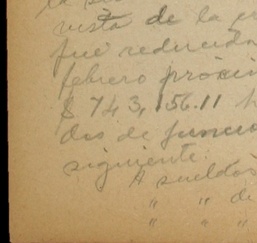 la
vista de la cr
fue reducida
febrero próxim
$ 743,156.11 h
dos de funcio
siguiente:
A sueldos
" " de
" " "